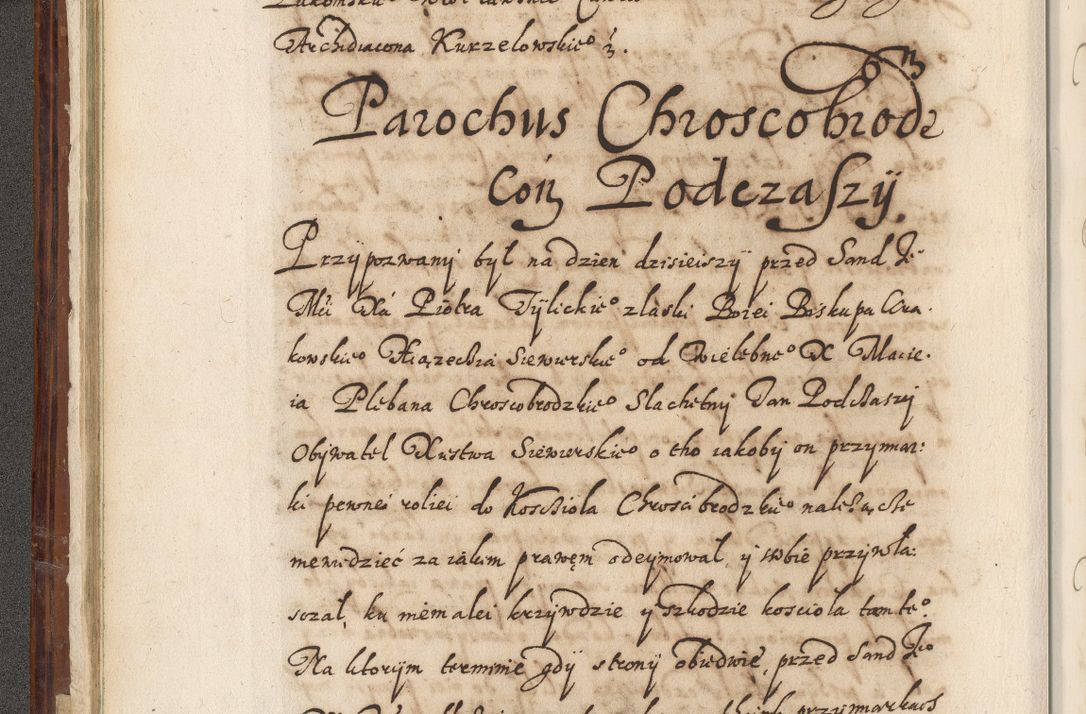 Archidiacona Kurzelowskieᵒ
Parochus Chroscobrode
Coń Podczaszÿ
Przypozwanÿ był na dzien dzisieiszÿ przed Sand Jᵒ
Mći Xá Piotra Tÿlickieᵒ z łaski Bozei Biskupa Cra.
kowskieᵒ Xiązęcia Siewierskieᵒ od Wielebneᵒ X Macie.
ia Plebana Chroscobrodzkieᵒ Slachetnÿ Jan Podczaszÿ
Obÿwatel Xsstwa Siewierskieᵒ o tho iakobÿ on przÿmiar:
ki pewnei roliei do Kosciola Chroscibrodzkieᵒ nalezące
niewidzieć za iakim prawęm odeÿmowal, ÿ sobie przÿwła:
sczal, ku niemalei krzÿwdzie ÿ szkodzie kosciola tamteᵒ
Na ktorÿm terminie gdÿ stronÿ obiedwie, przed Sand Jᵒ
przÿmiarkach